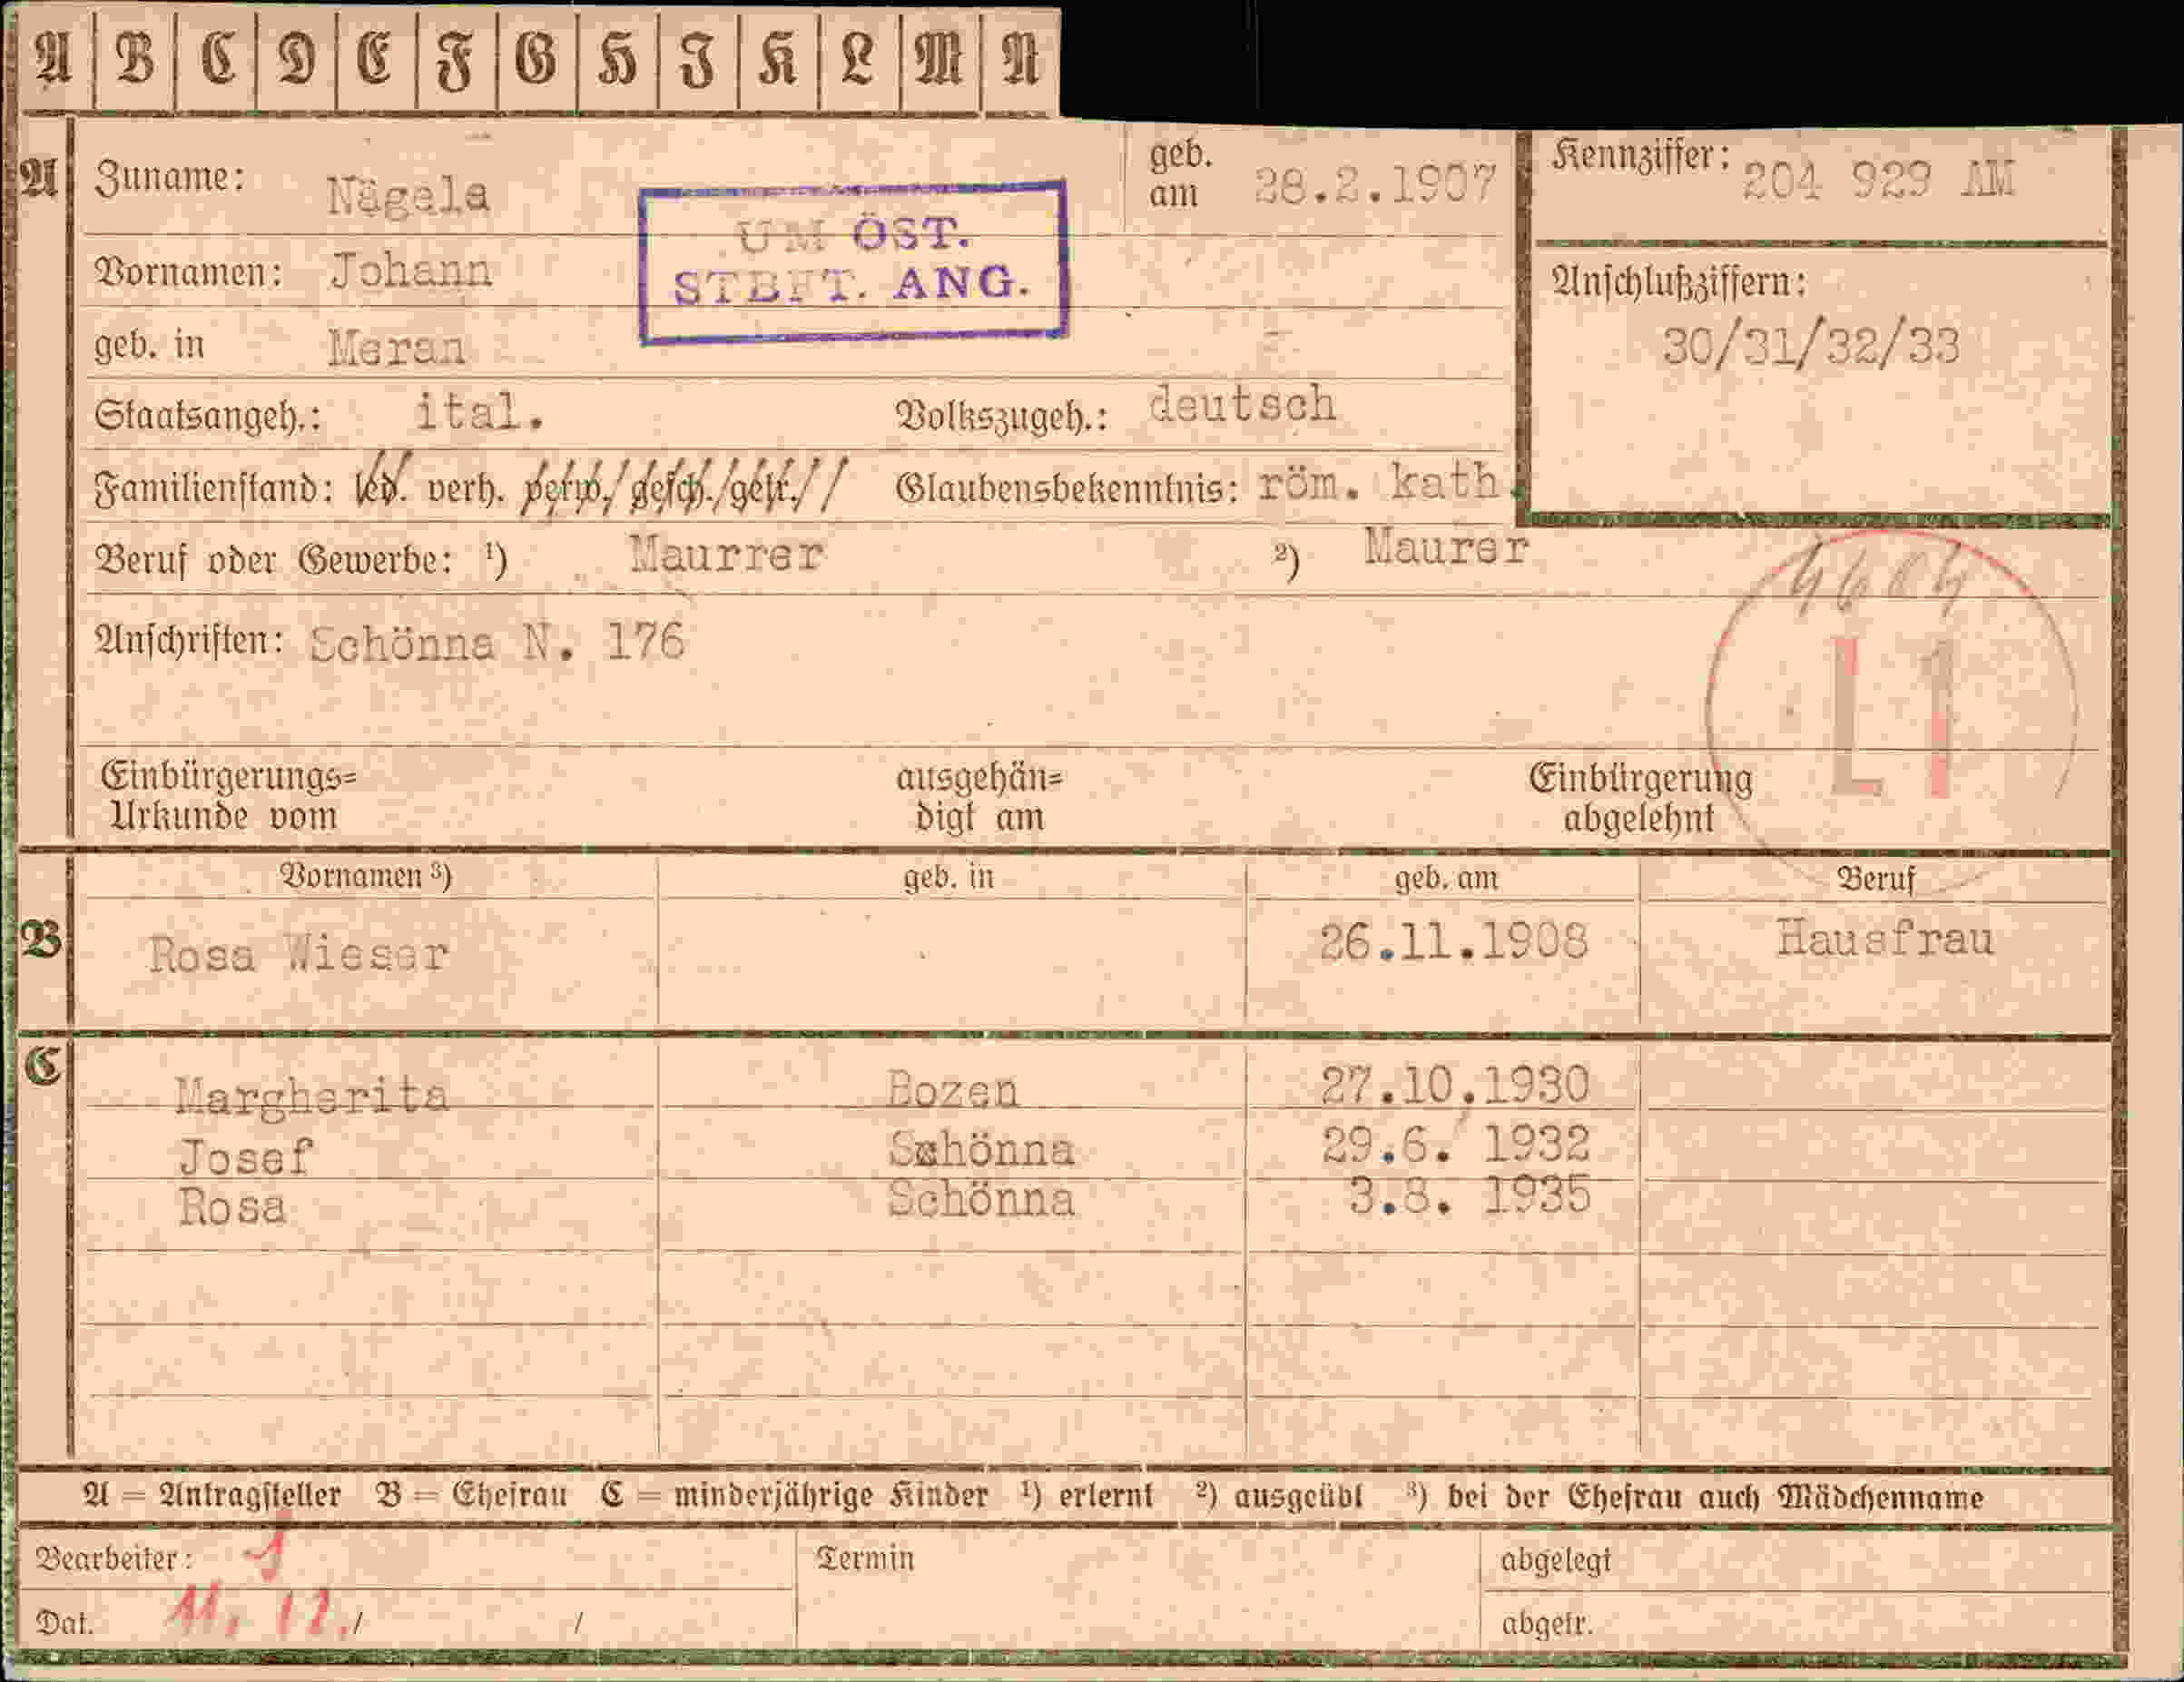 A B C D E F G H I K L M N
A Zuname: Nägele geb. am 28.2.1907 Kennziffer: 204 929 AM
UM ÖST.
STBFT. ANG.
Vornamen: Johann
Anschlußziffern:
30/31/32/33
geb. in Meran
Staatsangeh.: ital. Volkszugeh.: deutsch
Familienstand: led. verh. verw./gesch./getr.// Glaubensbekenntnis: röm. kath.
Beruf oder Gewerbe: ¹) Maurrer ²) Maurer
4604
L1
Anschriften: Schönna N. 176
Einbürgerungs= ausgehän= Einbürgerung
Urkunde vom digt am abgelehnt
Vornamen ³) geb. in geb. am Beruf
B Rosa Wieser 26.11.1908 Hausfrau
C Margherita Bozen 27.10.1930
Josef Schönna 29.6. 1932
Rosa Schönna 3.8. 1935
A = Antragsteller B = Ehefrau C = minderjährige Kinder ¹) erlernt ²) ausgeübt ³) bei der Ehefrau auch Mädchenname
Bearbeiter: Termin abgelegt
Dat. 11. 12./ / abgetr.